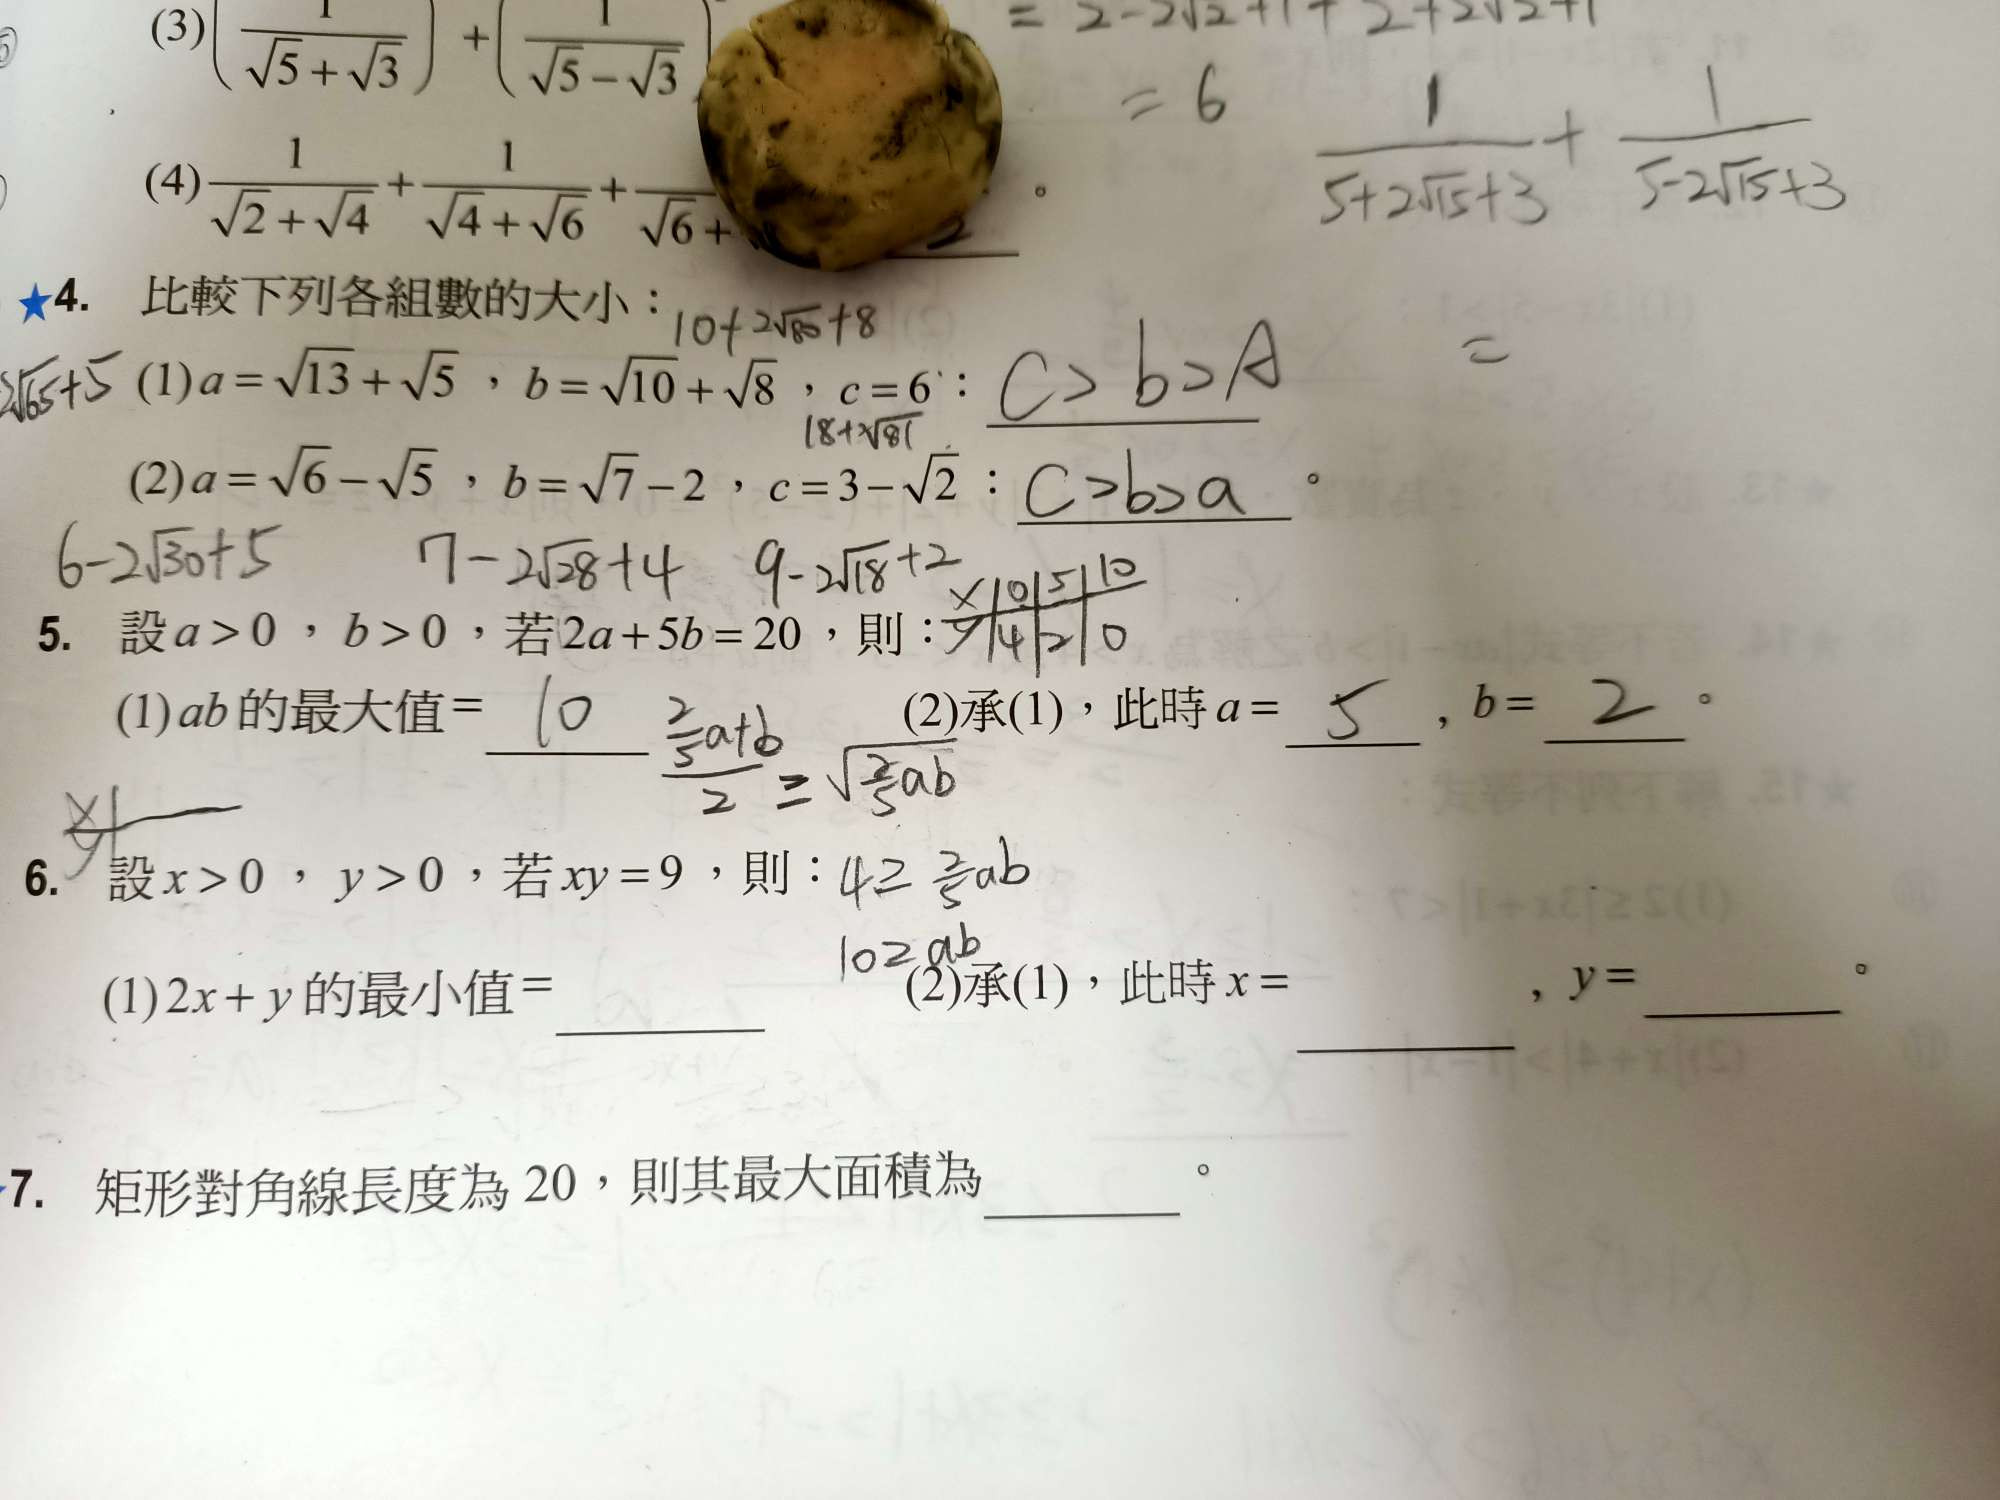 = 2-2√2+1+2+2√2+1
(3)(1/(√5+√3)) + (1/(√5-√3))
= 6
1/(5+2√15+3) + 1/(5-2√15+3)
(4) 1/(√2+√4) + 1/(√4+√6) + /(√6+ 2 。
★4. 比較下列各組數的大小：
10+2√80+8
=
2√65+5
(1) a=√13+√5 ，b=√10+√8 ，c=6：C>b>A
18+2√81
(2) a=√6-√5 ，b=√7-2 ，c=3-√2：C>b>a。
6-2√30+5 7-2√28+4 9-2√18+2
x|0|5|10
y|4|2|0
5. 設a>0 ，b>0 ，若2a+5b=20 ，則：
(1) ab的最大值= 10 (2)承(1)，此時a= 5 , b= 2 。
(2/5a+b)/2 ≥ √(2/5ab)
x
y
6. 設x>0 ，y>0 ，若xy=9 ，則：
4≥2/5ab
10≥ab
(1)2x+y的最小值= (2)承(1)，此時x= , y= 。
7. 矩形對角線長度為20，則其最大面積為 。